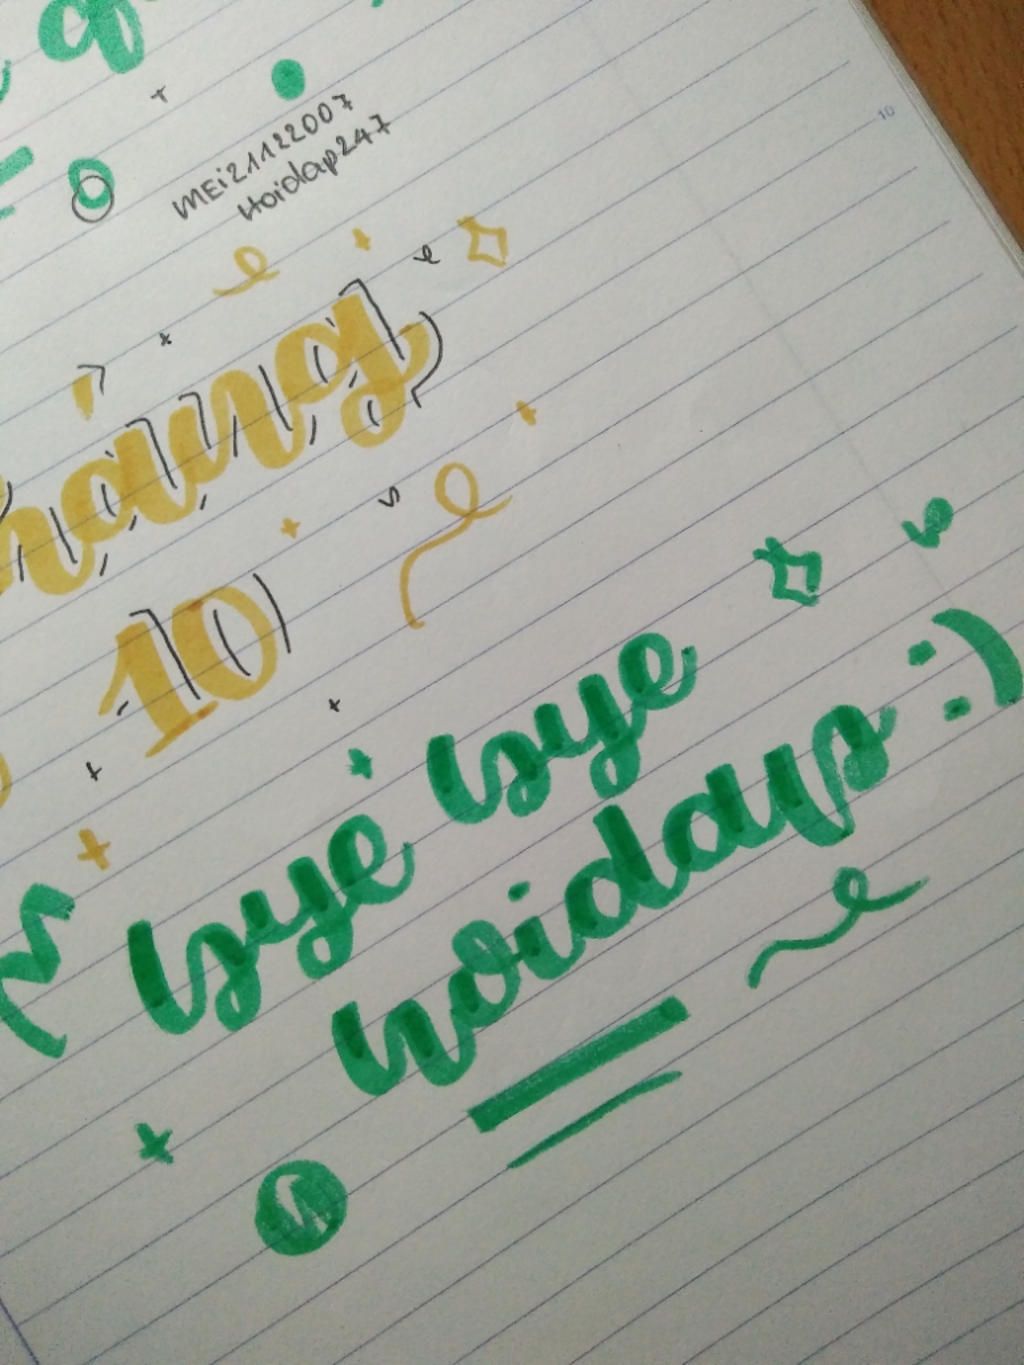 MEi21122007
Hoidap247
10
háng
10
bye bye
hoidap :)